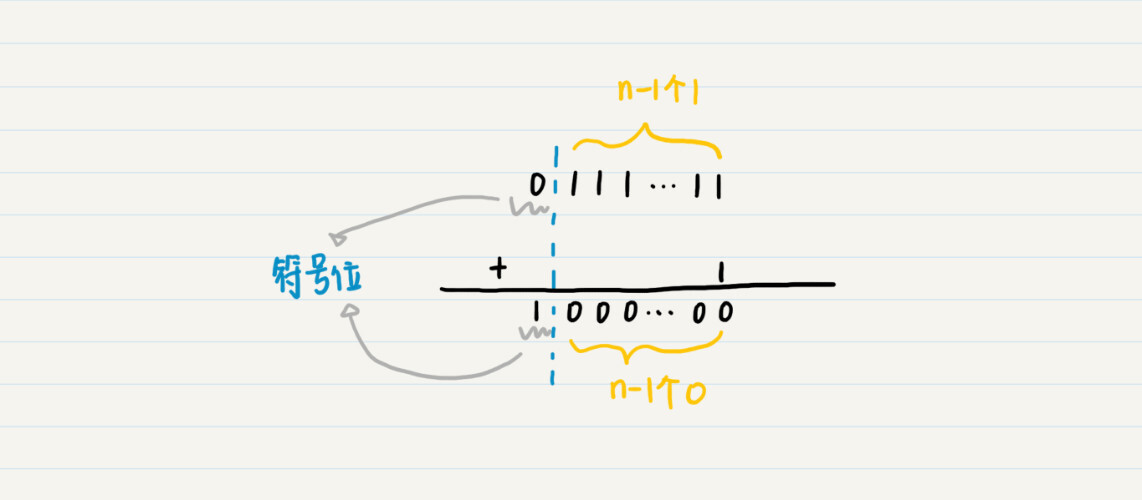 n-1个1
0 1 1 1 … 1 1
符号位
+ 1
1 0 0 0 … 0 0
n-1个0